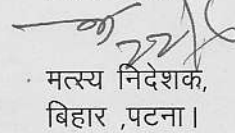 मत्स्य निदेशक,
बिहार ,पटना।